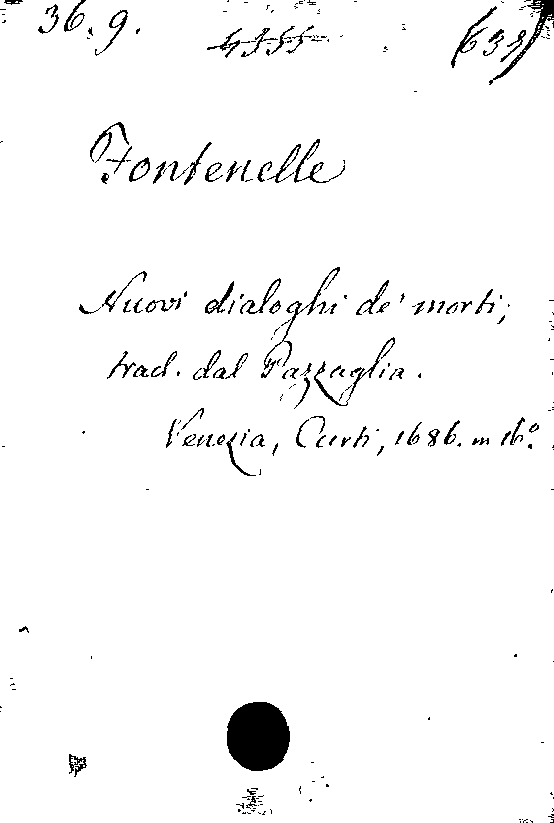 36. 9. 4355 (638)
Fontenelle
Nuovi dialoghi de' morti;
trad. dal Pazzaglia.
Venezia, Curti, 1686. in 16º.